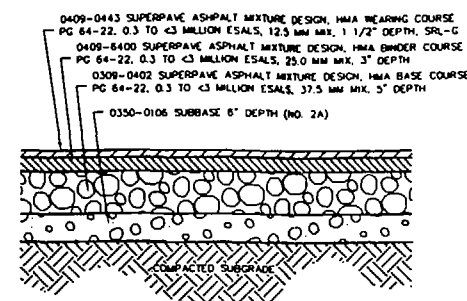 0409-0443 SUPERPAVE ASHPALT MIXTURE DESIGN, HMA WEARING COURSE
PG 64-22, 0.3 TO <3 MILLION ESALS, 12.5 MM MIX, 1 1/2" DEPTH, SRL-G
0409-6400 SUPERPAVE ASPHALT MIXTURE DESIGN, HMA BINDER COURSE
PG 64-22, 0.3 TO <3 MILLION ESALS, 25.0 MM MIX, 3" DEPTH
0309-0402 SUPERPAVE ASPHALT MIXTURE DESIGN, HMA BASE COURSE
PG 64-22, 0.3 TO <3 MILLION ESALS, 37.5 MM MIX, 5" DEPTH
0350-0106 SUBBASE 6" DEPTH (NO. 2A)
COMPACTED SUBGRADE